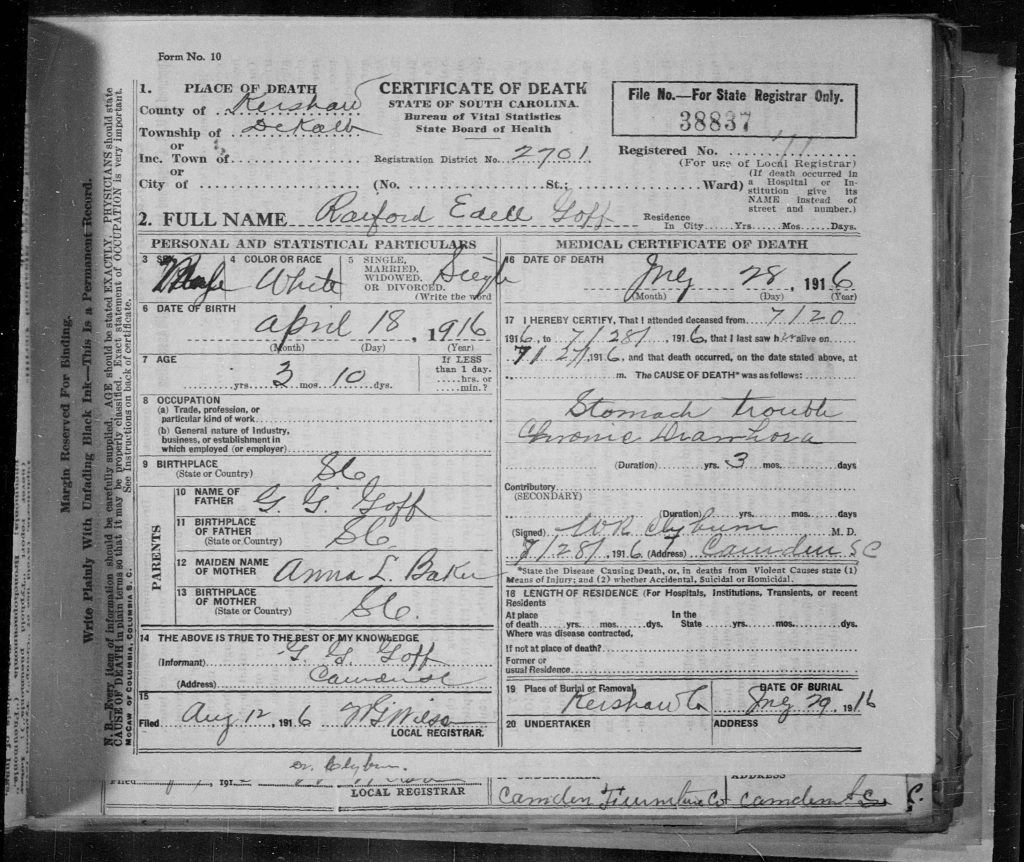 Form No. 10
1. PLACE OF DEATH
County of Kershaw
Township of DeKalb
or
Inc. Town of
or
City of
CERTIFICATE OF DEATH
STATE OF SOUTH CAROLINA.
Bureau of Vital Statistics
State Board of Health
Registration District No. 2701
(No. St.; Ward)
File No.—For State Registrar Only.
38837
Registered No.
(For use of Local Registrar)
(If death occurred in
a Hospital or In-
stitution give its
NAME instead of
street and number.)
2. FULL NAME Raiford Edell Goff
Residence
In City Yrs. Mos. Days.
PERSONAL AND STATISTICAL PARTICULARS
3 SEX
4 COLOR OR RACE
White
5 SINGLE,
MARRIED,
WIDOWED,
OR DIVORCED.
(Write the word
Single
6 DATE OF BIRTH
April 18, 1916
(Month) (Day) (Year)
7 AGE
yrs. 3 mos. 10 dys.
If LESS
than 1 day.
hrs. or
min.?
8 OCCUPATION
(a) Trade, profession, or
particular kind of work
(b) General nature of Industry,
business, or establishment in
which employed (or employer)
9 BIRTHPLACE
(State or Country)
SC
PARENTS
10 NAME OF
FATHER
G. G. Goff
11 BIRTHPLACE
OF FATHER
(State or Country)
SC
12 MAIDEN NAME
OF MOTHER
Anna L. Baker
13 BIRTHPLACE
OF MOTHER
(State or Country)
SC
14 THE ABOVE IS TRUE TO THE BEST OF MY KNOWLEDGE
(Informant) G. G. Goff
(Address) Camden SC
15
Filed Aug 12, 1916 W G Wilson
LOCAL REGISTRAR.
MEDICAL CERTIFICATE OF DEATH
16 DATE OF DEATH
28, 1916
(Month) (Day) (Year)
17 I HEREBY CERTIFY, That I attended deceased from 7/20
1916, to 7/28/, 1916, that I last saw h alive on
7/27/, 1916, and that death occurred, on the date stated above, at
m. The CAUSE OF DEATH* was as follows:
Stomach trouble
Chronic
(Duration) yrs. 3 mos. days
Contributory
(SECONDARY)
(Duration) yrs. mos. days
(Signed) W R Clyburn M. D.
7/28/, 1916 (Address) Camden SC
*State the Disease Causing Death, or, in deaths from Violent Causes state (1)
Means of Injury; and (2) whether Accidental, Suicidal or Homicidal.
18 LENGTH OF RESIDENCE (For Hospitals, Institutions, Transients, or recent
Residents
At place
of death yrs. mos. dys.
In the
State yrs. mos. dys.
Where was disease contracted,
If not at place of death?
Former or
usual Residence
19 Place of Burial or Removal
Kershaw Co
DATE OF BURIAL
29, 1916
20 UNDERTAKER
ADDRESS
Margin Reserved For Binding.
Write Plainly With Unfading Black Ink—This Is a Permanent Record.
N. B.—Every item of information should be carefully supplied. AGE should be stated EXACTLY. PHYSICIANS should state
CAUSE OF DEATH in plain terms so that it may be properly classified. Exact statement of OCCUPATION is very important.
See Instructions on back of certificate.
McCAW OF COLUMBIA, COLUMBIA S. C.
Dr. Clyburn.
Filed 191
LOCAL REGISTRAR
ADDRESS
Camden Furniture Co Camden S. C.